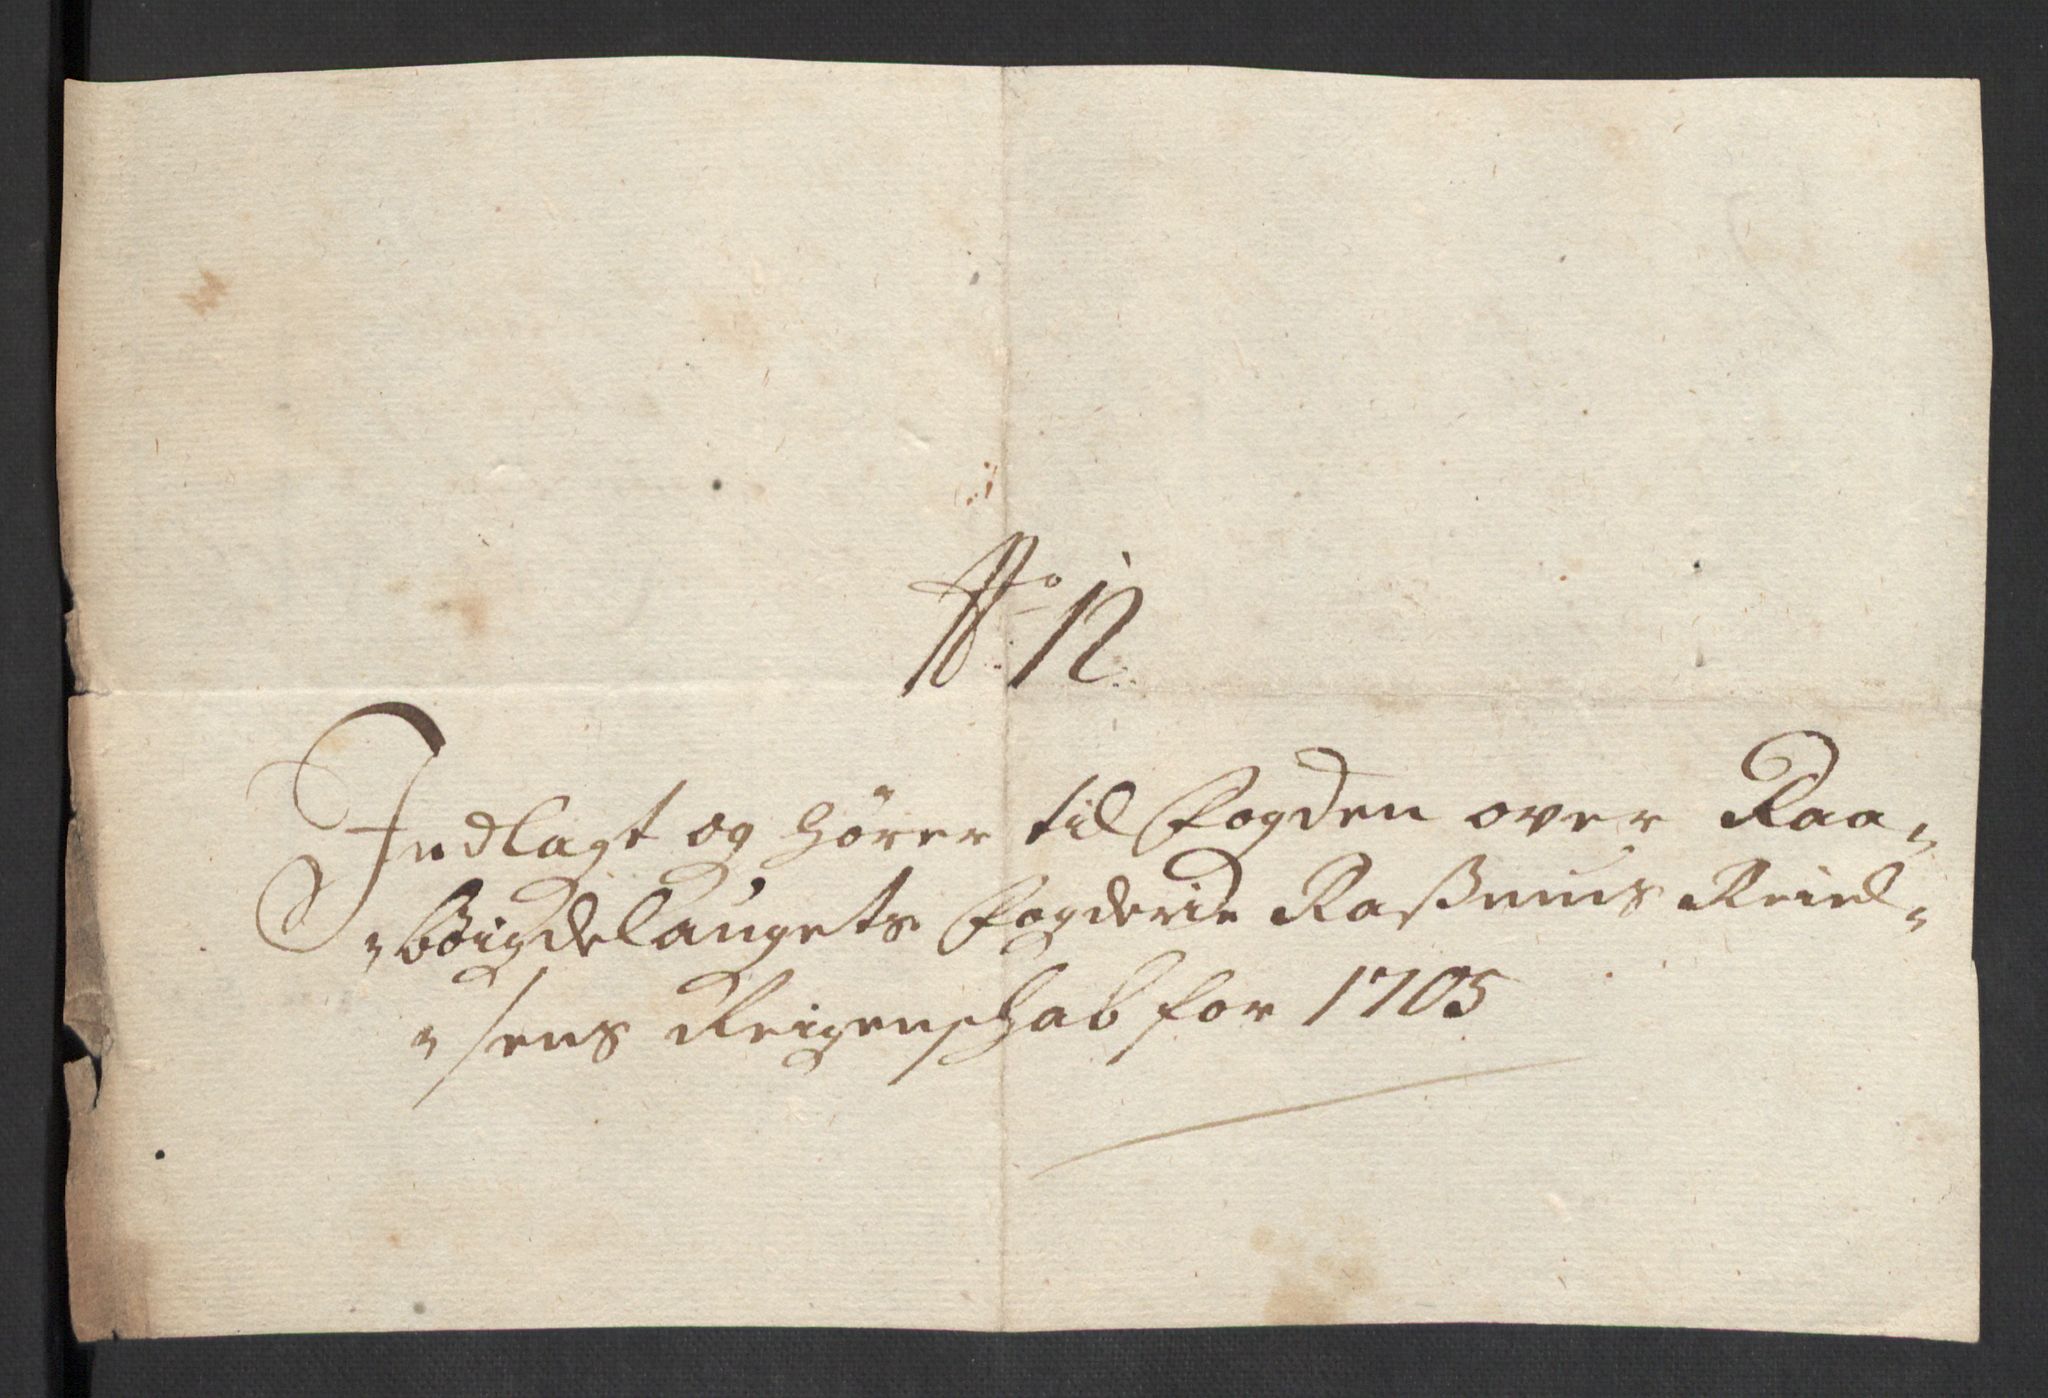 No 12
Indlagt og hörer til Fogden over Raa„
„böigdelaugets Fogderie Raßmus Reiel„
„sens Reigenschab for 1705